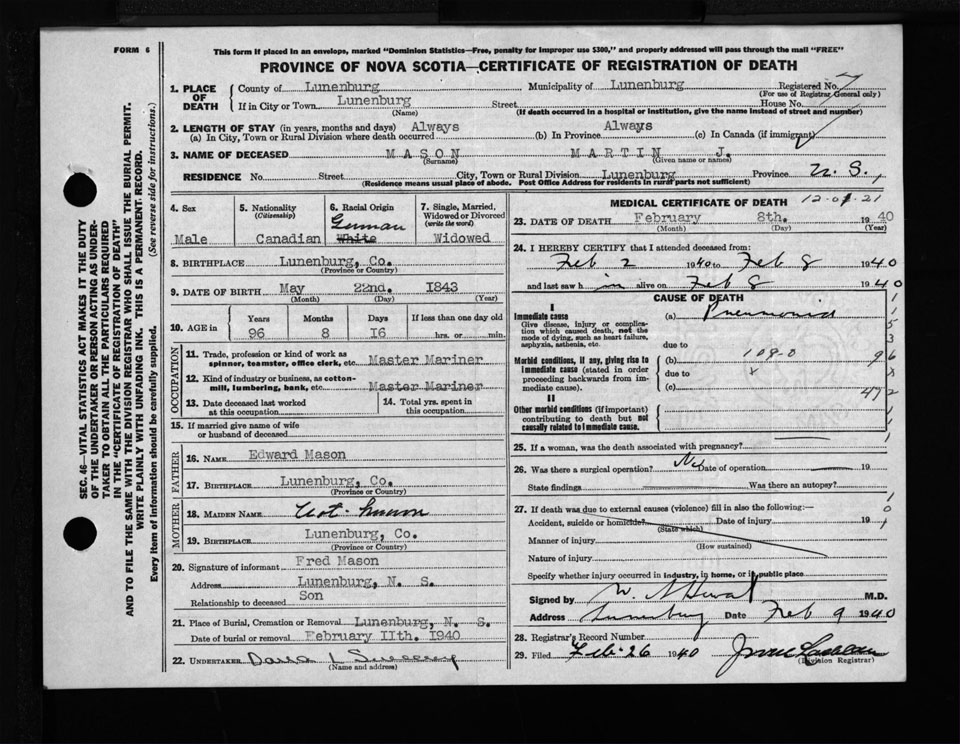 FORM 6
This form if placed in an envelope, marked "Dominion Statistics—Free, penalty for improper use $300," and properly addressed will pass through the mail "FREE"
PROVINCE OF NOVA SCOTIA—CERTIFICATE OF REGISTRATION OF DEATH
SEC. 46—VITAL STATISTICS ACT MAKES IT THE DUTY
OF THE UNDERTAKER OR PERSON ACTING AS UNDER-
TAKER TO OBTAIN ALL THE PARTICULARS REQUIRED
IN THE "CERTIFICATE OF REGISTRATION OF DEATH"
AND TO FILE THE SAME WITH THE DIVISION REGISTRAR WHO SHALL ISSUE THE BURIAL PERMIT.
WRITE PLAINLY WITH UNFADING INK. THIS IS A PERMANENT RECORD.
Every item of information should be carefully supplied. (See reverse side for instructions.)
1. PLACE OF DEATH
County of Lunenburg Municipality of Lunenburg Registered No. 7
(For use of Registrar General only)
If in City or Town Lunenburg Street House No.
(Name) (If death occurred in a hospital or institution, give the name instead of street and number)
2. LENGTH OF STAY (in years, months and days) Always Always
(a) In City, Town or Rural Division where death occurred (b) In Province (c) In Canada (if immigrant)
3. NAME OF DECEASED MASON MARTIN J.
(Surname) (Given name or names)
RESIDENCE No. Street City, Town or Rural Division Lunenburg Province N. S.,
(Residence means usual place of abode. Post Office Address for residents in rural parts not sufficient)
4. Sex 5. Nationality 6. Racial Origin 7. Single, Married,
(Citizenship) German Widowed or Divorced
(write the word)
Male Canadian White Widowed
8. BIRTHPLACE Lunenburg, Co.
(Province or Country)
9. DATE OF BIRTH May 22nd. 1843
(Month) (Day) (Year)
10. AGE in Years Months Days If less than one day old
96 8 16 hrs. or min.
OCCUPATION
11. Trade, profession or kind of work as
spinner, teamster, office clerk, etc. Master Mariner
12. Kind of industry or business, as cotton-
mill, lumbering, bank, etc. Master Mariner
13. Date deceased last worked 14. Total yrs. spent in
at this occupation this occupation
15. If married give name of wife
or husband of deceased
FATHER
16. NAME Edward Mason
17. BIRTHPLACE Lunenburg, Co.
(Province or Country)
MOTHER
18. MAIDEN NAME
19. BIRTHPLACE Lunenburg, Co.
(Province or Country)
20. Signature of informant Fred Mason
Address Lunenburg, N. S.
Relationship to deceased Son
21. Place of Burial, Cremation or Removal Lunenburg, N. S.
Date of burial or removal February 11th. 1940
22. UNDERTAKER
(Name and address)
MEDICAL CERTIFICATE OF DEATH 12-01-21
23. DATE OF DEATH February 8th. 1940
(Month) (Day) (Year)
24. I HEREBY CERTIFY that I attended deceased from:
Feb 2 1940 to Feb 8 1940
and last saw h im alive on Feb 8 1940
CAUSE OF DEATH
I
Immediate cause (a) Pneumonia
Give disease, injury or complica-
tion which caused death, not the
mode of dying, such as heart failure,
asphyxia, asthenia, etc.
due to
Morbid conditions, if any, giving rise to (b) 109-0
immediate cause (stated in order due to
proceeding backwards from im-
mediate cause). (c)
II
Other morbid conditions (if important)
contributing to death but not
causally related to immediate cause.
25. If a woman, was the death associated with pregnancy?
26. Was there a surgical operation? No Date of operation 19
State findings Was there an autopsy?
27. If death was due to external causes (violence) fill in also the following:—
Accident, suicide or homicide? Date of injury 19
(State which)
Manner of injury
(How sustained)
Nature of injury
Specify whether injury occurred in industry, in home, or in public place
Signed by M.D.
Address Lunenburg Date Feb 9 1940
28. Registrar's Record Number
29. Filed Feb. 26 1940
(Division Registrar)